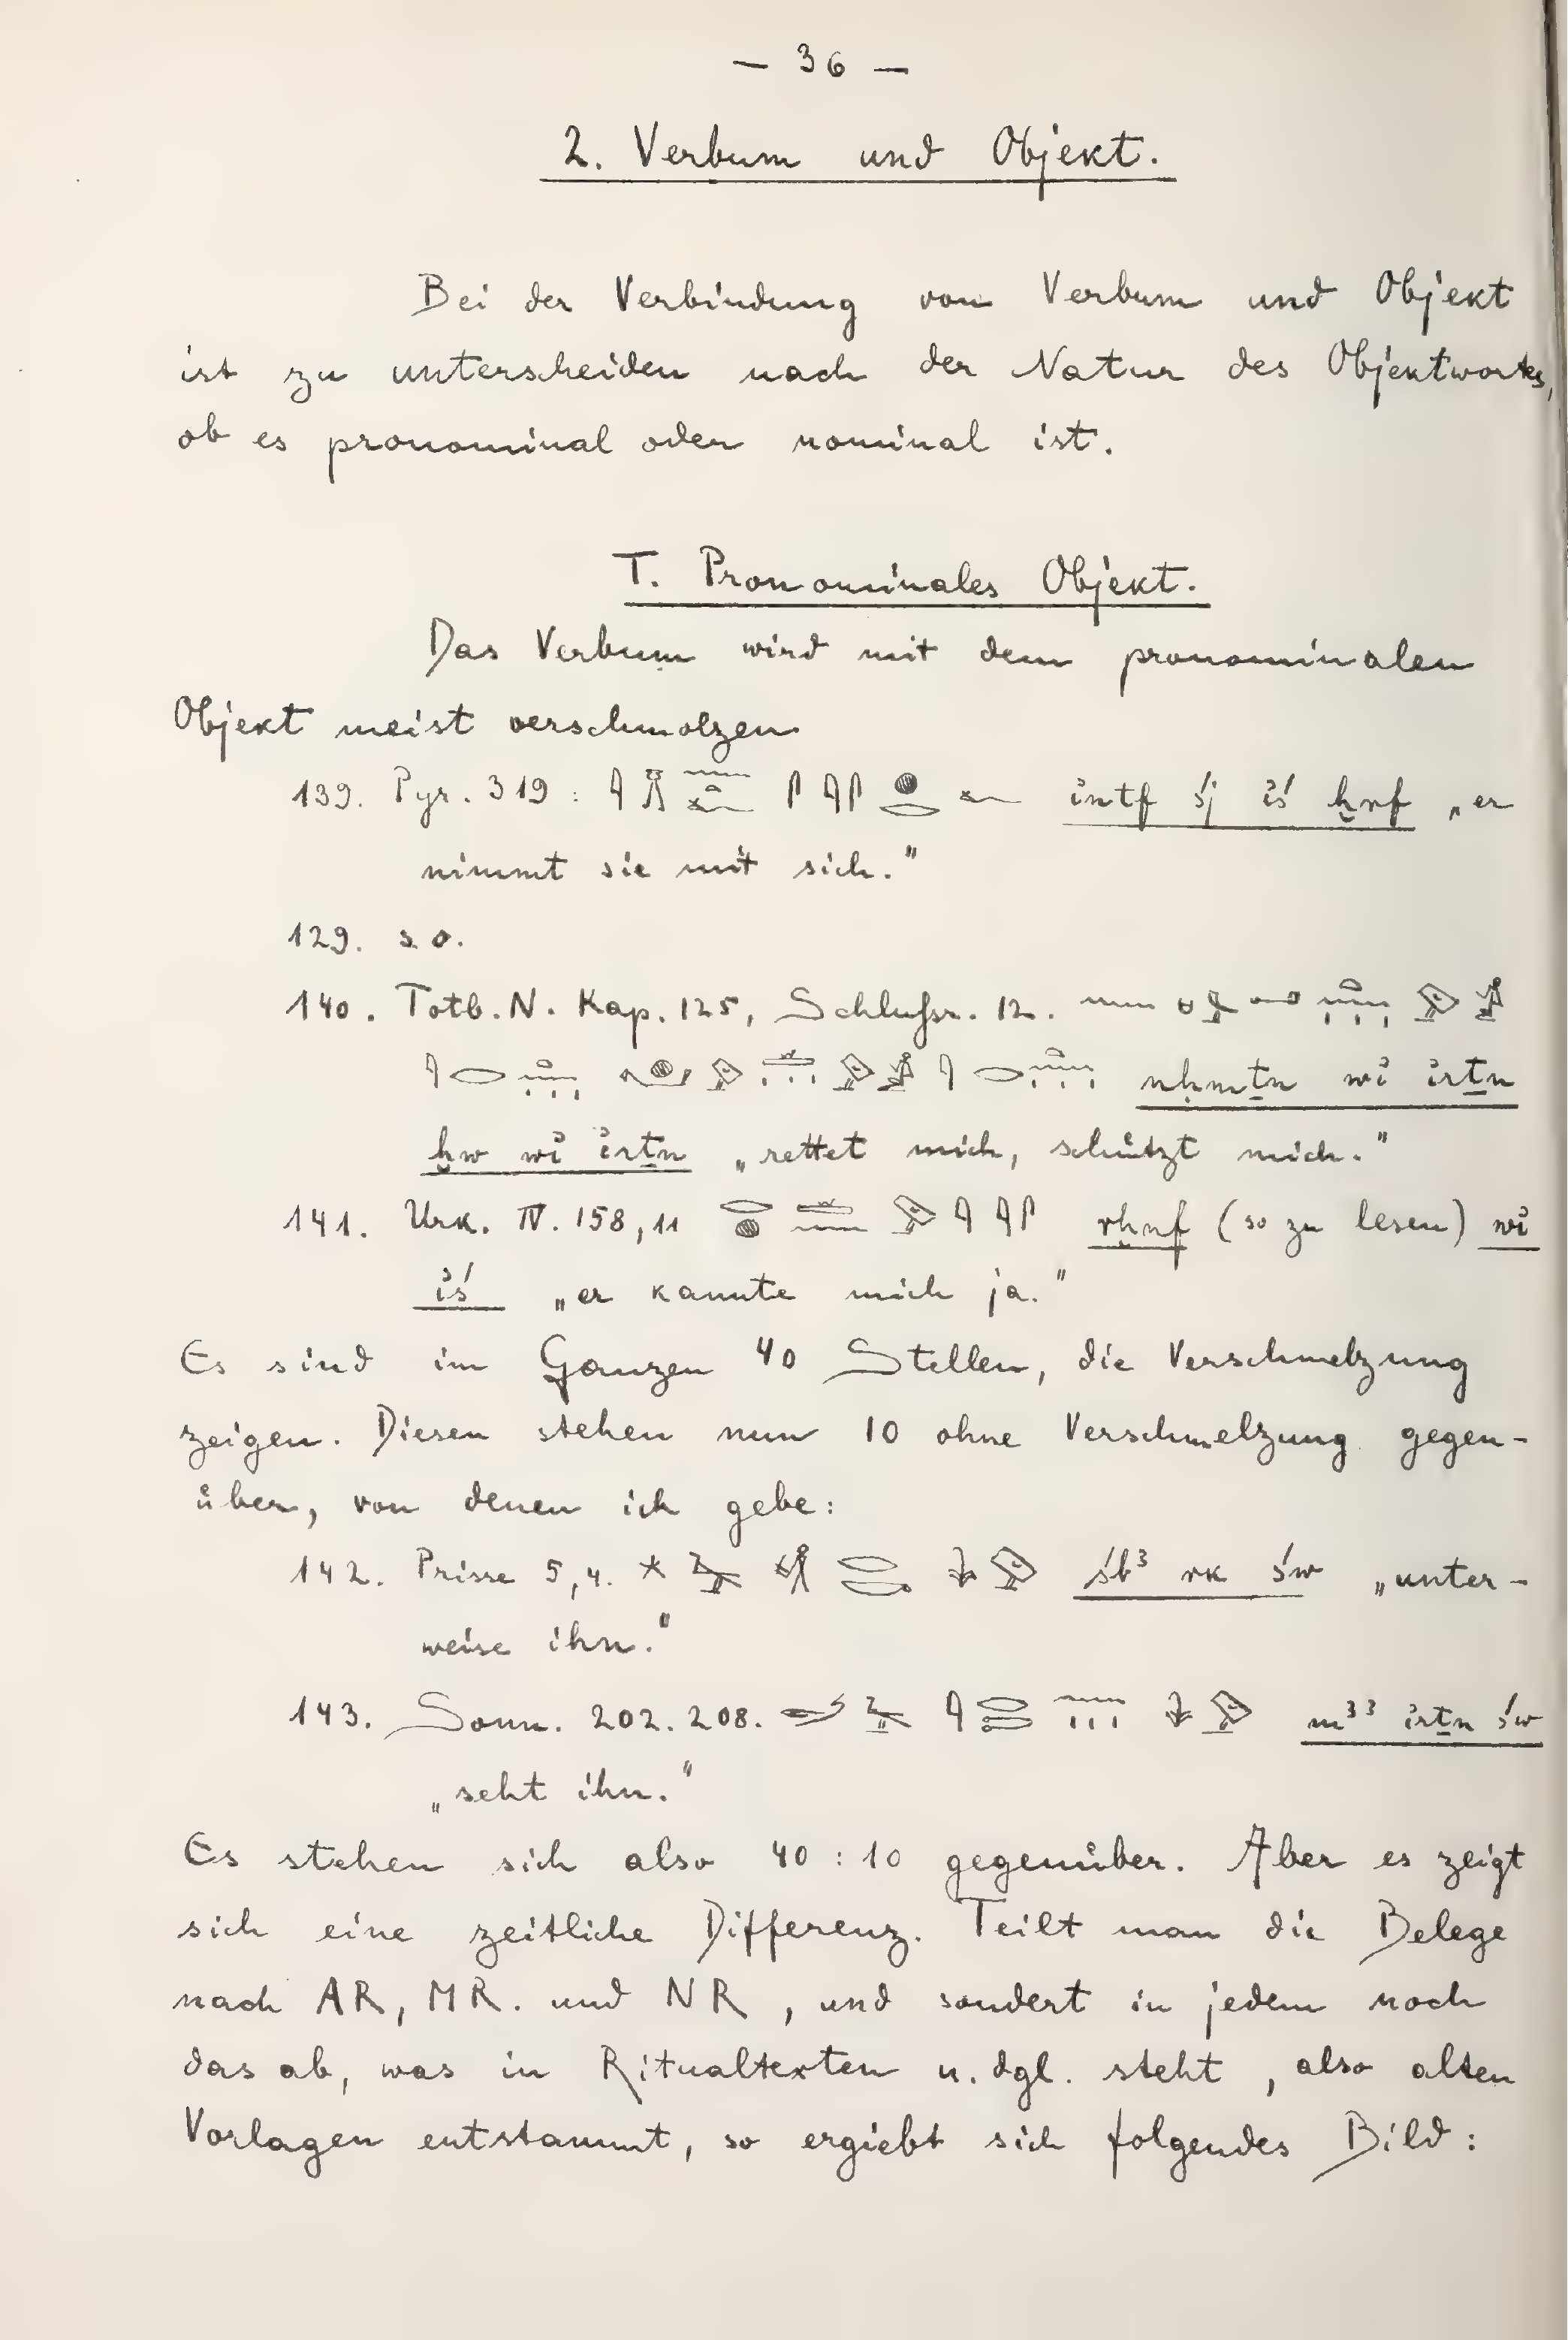 — 36 —
2. Verbum und Objekt.
Bei der Verbindung von Verbum und Objekt
ist zu unterscheiden nach der Natur des Objektwortes,
ob es pronominal oder nominal ist.
I. Pronominales Objekt.
Das Verbum wird mit dem pronominalen
Objekt meist verschmolzen
139. Pyr. 319 : i͗ntf śj i͗ś ḫrf „er
nimmt sie mit sich."
129. s. o.
140. Totb. N. Kap. 125, Schlußr. 12.
nḥmṯn wi͗ i͗rṯn
ḫw wi͗ i͗rṯn „rettet mich, schützt mich."
141. Urk. IV. 158, 11 rḫnf (so zu lesen) wi͗
i͗ś „er kannte mich ja."
Es sind im Ganzen 40 Stellen, die Verschmelzung
zeigen. Diesen stehen nun 10 ohne Verschmelzung gegen-
über, von denen ich gebe:
142. Prisse 5, 4. śbꜣ rk św „unter-
weise ihn."
143. Sonn. 202. 208. mꜣꜣ i͗rṯn św
„seht ihn."
Es stehen sich also 40 : 10 gegenüber. Aber es zeigt
sich eine zeitliche Differenz. Teilt man die Belege
nach AR, MR. und NR, und sondert in jedem noch
das ab, was in Ritualtexten u. dgl. steht, also alten
Vorlagen entstammt, so ergiebt sich folgendes Bild: